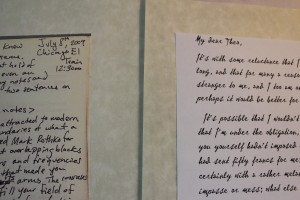 know
July 8th, 2007
Chicago El
Train
12:30am
hold of
even an
y notes and)
two sentences on
notes>
attracted to modern
boundaries of what a
Mark Rothko for
overlapping blacks
and frequencies
that made you
arms. The
fill your field of
My dear Theo,
It's with some reluctance that I
long, and that for many a reaso
stranger to me, and I too am
perhaps it would be better for
It's possible that I wouldn't
that I'm under the obligation,
you yourself hadn't imposed
had send fifty francs for me
certainly with a rather melan
impasse or mess; what else